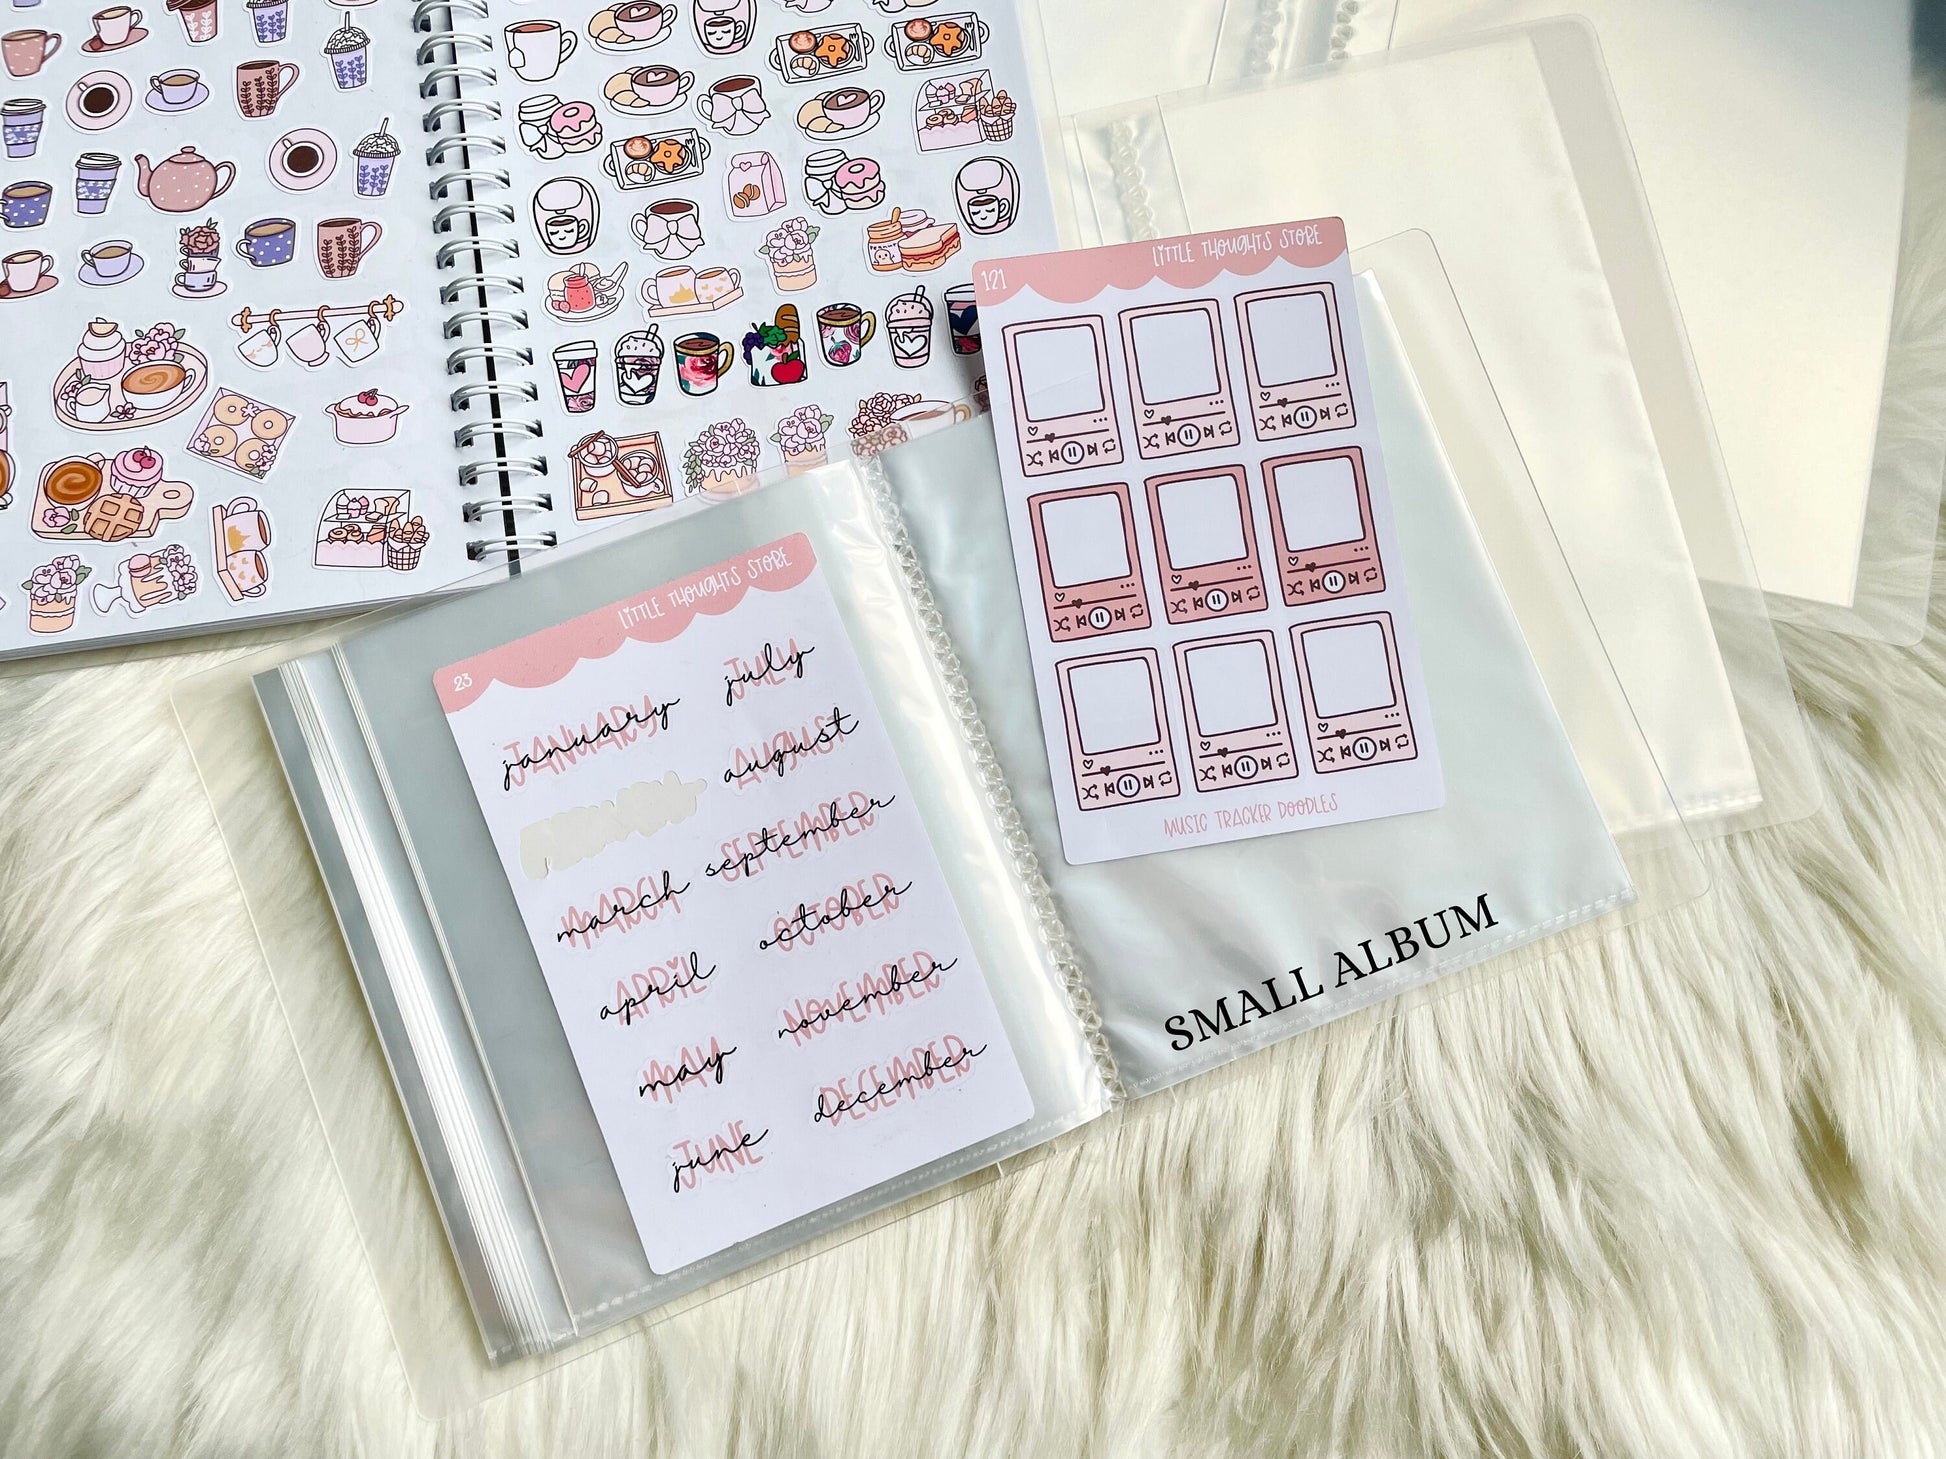 LITTLE THOUGHTS STORE
121
MUSIC TRACKER DOODLES
LITTLE THOUGHTS STORE
23
JANUARY
january
JULY
july
AUGUST
august
MARCH
march
SEPTEMBER
september
APRIL
april
OCTOBER
october
MAY
may
NOVEMBER
november
JUNE
june
DECEMBER
december
SMALL ALBUM